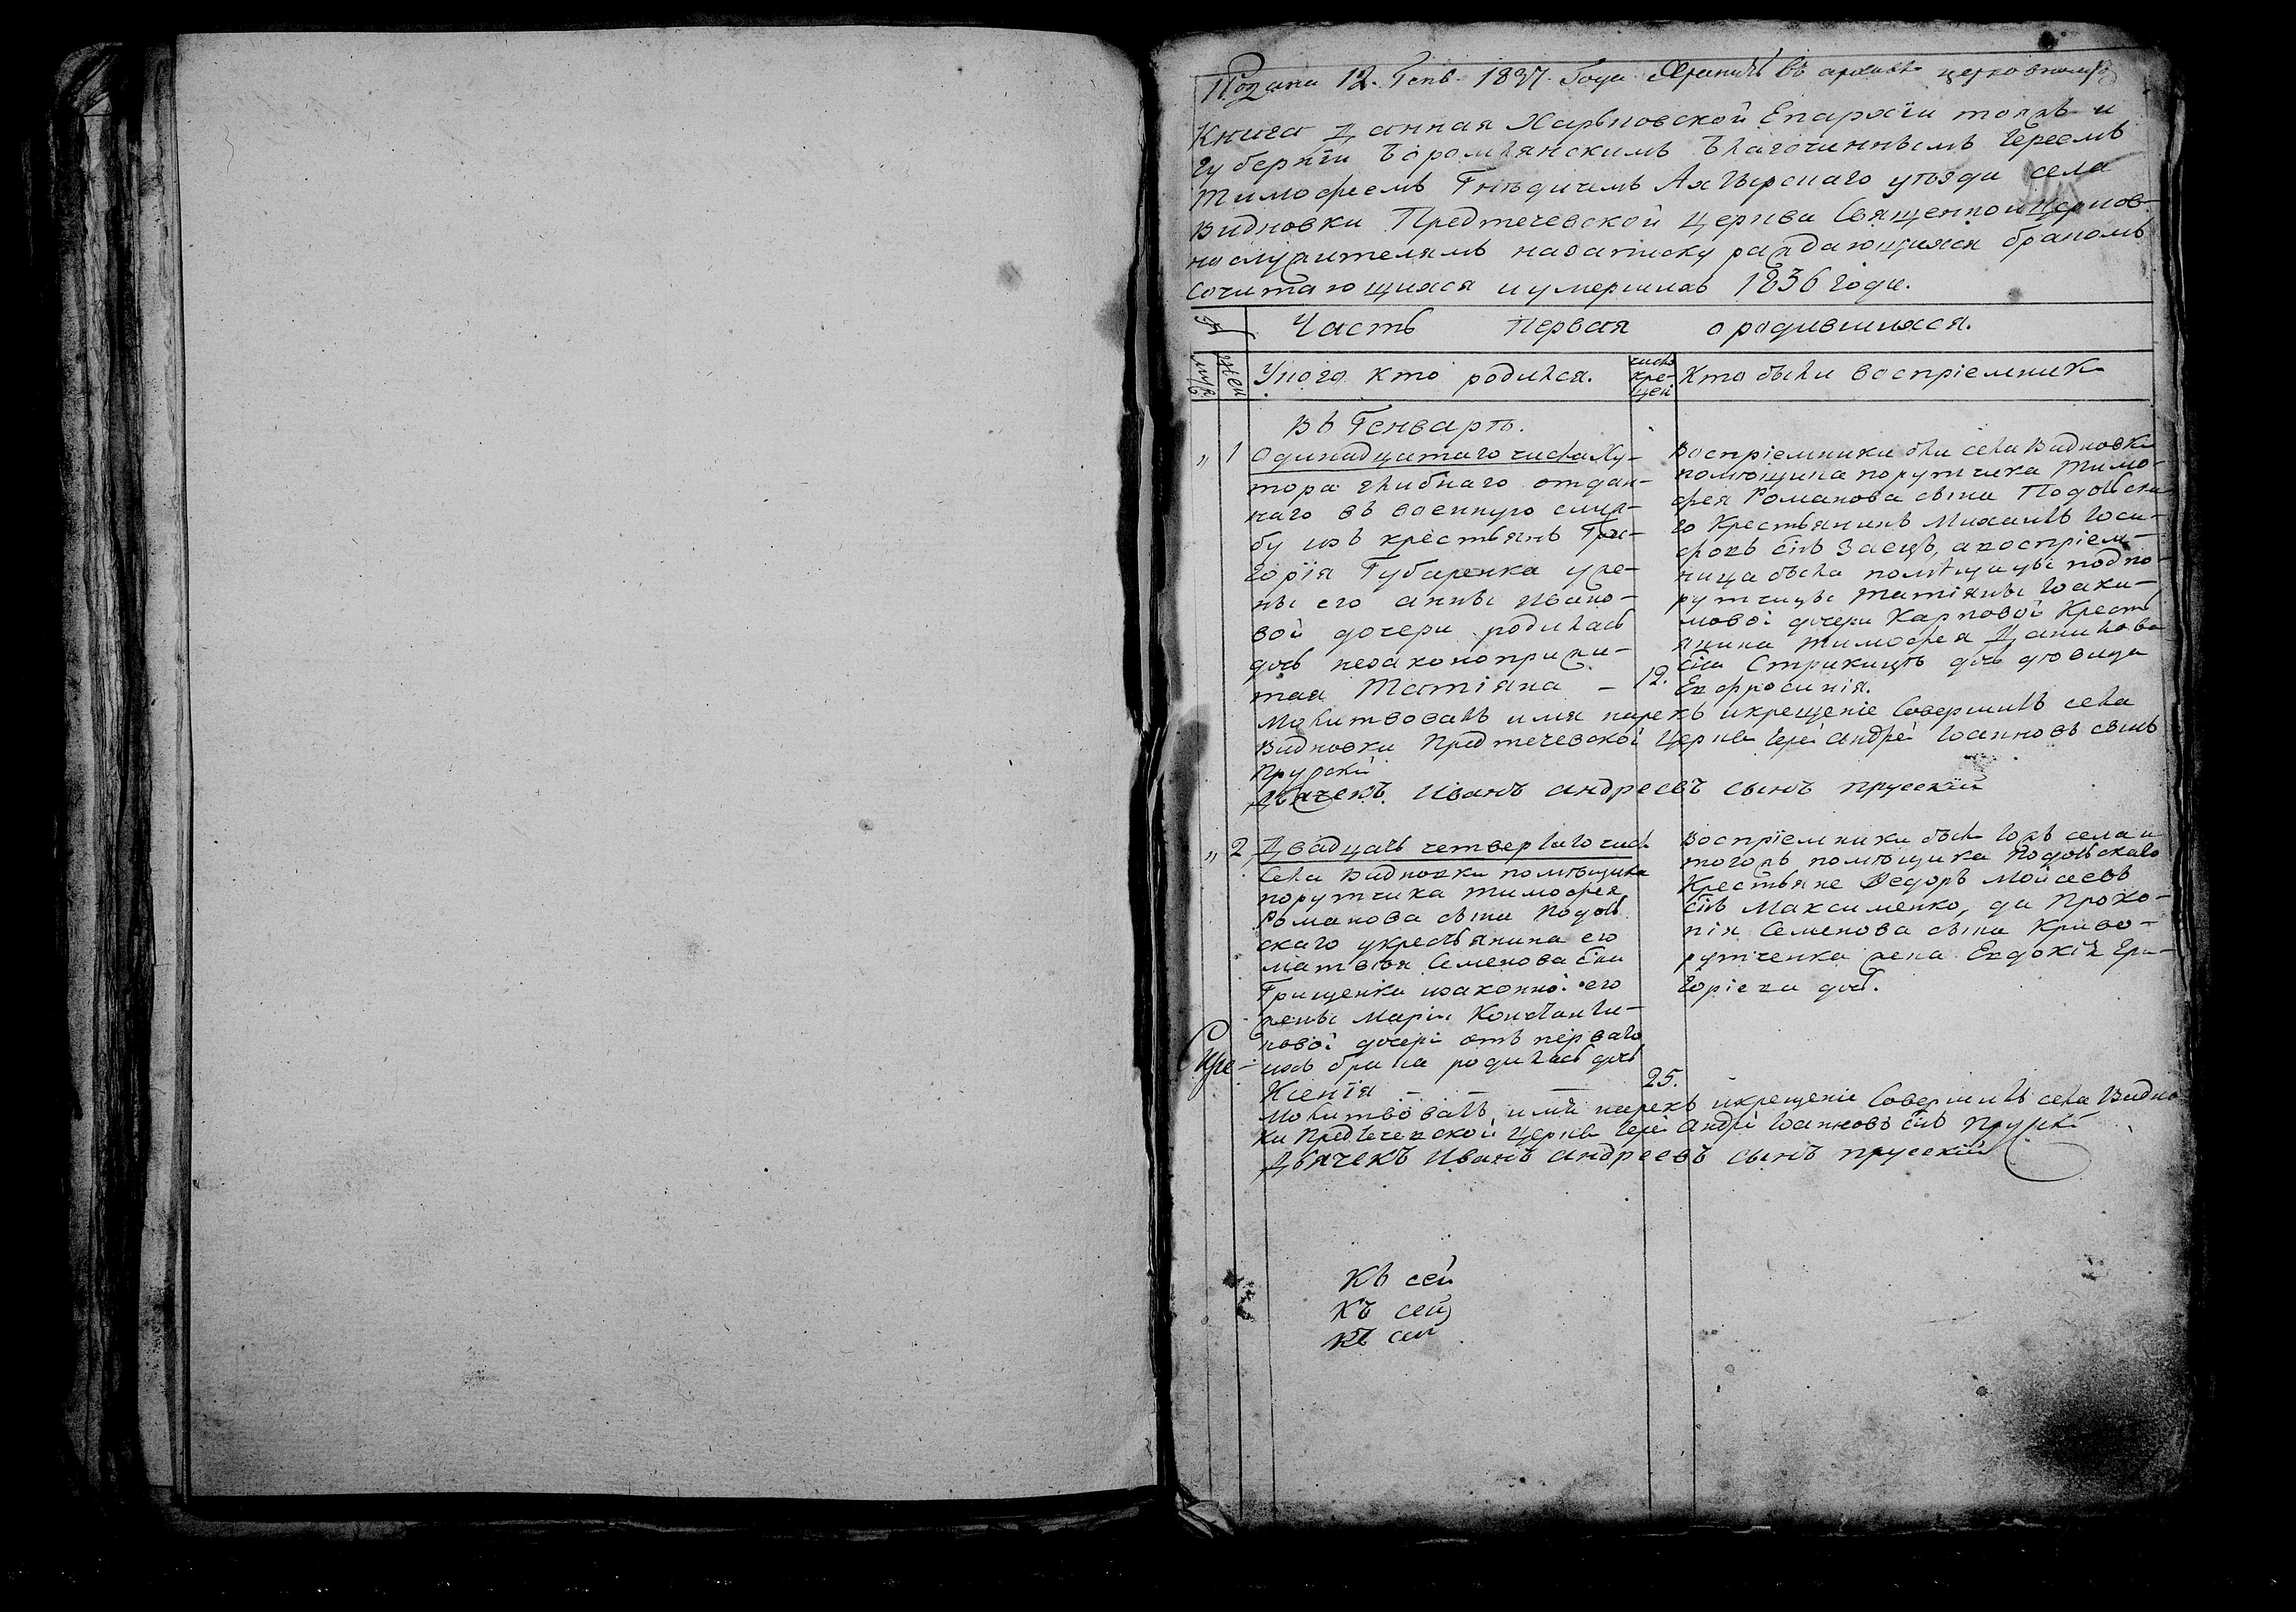 Подана 12. Генв. 1837. Года Хранить въ архивѣ церковномъ
Книга Данная Харьковской Епархіи тояжъ и
губерніи Боромлянскимъ Благочиннымъ Іереемъ
Тимофеемъ Гнѣдичемъ Ахтырскаго уѣзда села
Видновки Предтечевской Церкви Священноцерков-
нослужителямъ назаписку раждающихся бракомъ
сочитающихся иумершихъ 1836 года.
Часть Первая ородившихся.
муж жен
Укого кто родился.
число кре-
щен
Кто были воспріемник
Въ Генварѣ.
" 1 Одинадцатаго числа Ху-
тора глибнаго отдан-
наго въ военную служ-
бу изъ крестьянъ Гри-
горія Губаренка уже-
ны его анны Ивано-
вой дочери родилась
дочь незаконоприжи-
тая Татіяна – 12.
Воспріемники бли села Видновки
помѣщика порутчика Тимо-
фея Романова сына Подольска
го Крестьянинъ Михаилъ Іоси-
фовъ снъ Заецъ, авоспріем-
ница была помѣщицы подпо-
рутчицы Татіяны Іоаки-
мовой дочери Карповой Крестъ
янина Тимофея Данилова
сна дочь дѣвица
Евфросинія.
Молитвовалъ имя нарекъ икрещеніе Совершилъ села
Видновки Предтечевской Церкви Іерей Андрей Іоанновъ сынъ
Прускій
Дьячекъ Иванъ андреевъ сынъ прусскій
" 2 Двадцать четвертаго числ
Села Видновки помѣщика
порутчика Тимофея
Романова сына Подоль
скаго укрестьянина его
Матвѣя Семенова сна
Грищенка изаконной его
жены Маріи Константи-
новой дочери отъ перваго
ихъ брака родилась дочь
Ксенія – – – 25.
Воспріемники были тогожъ села и
тогожъ помѣщика Подольскаго
Крестьяне Федоръ Мойсеевъ
снъ Максименко, да Проко-
пія Семенова сына Криво-
рутченка жена Евдокія Гри-
горіева дочь.
Молитвовалъ имя нарекъ икрещеніе Совершилъ села Видно
ки Предтечевской Церкви Іерей Андрей Іоанновъ снъ Прускій
Дьячекъ Иванъ андреевъ сынъ прусскій
Къ сей
Къ сей
Къ сей